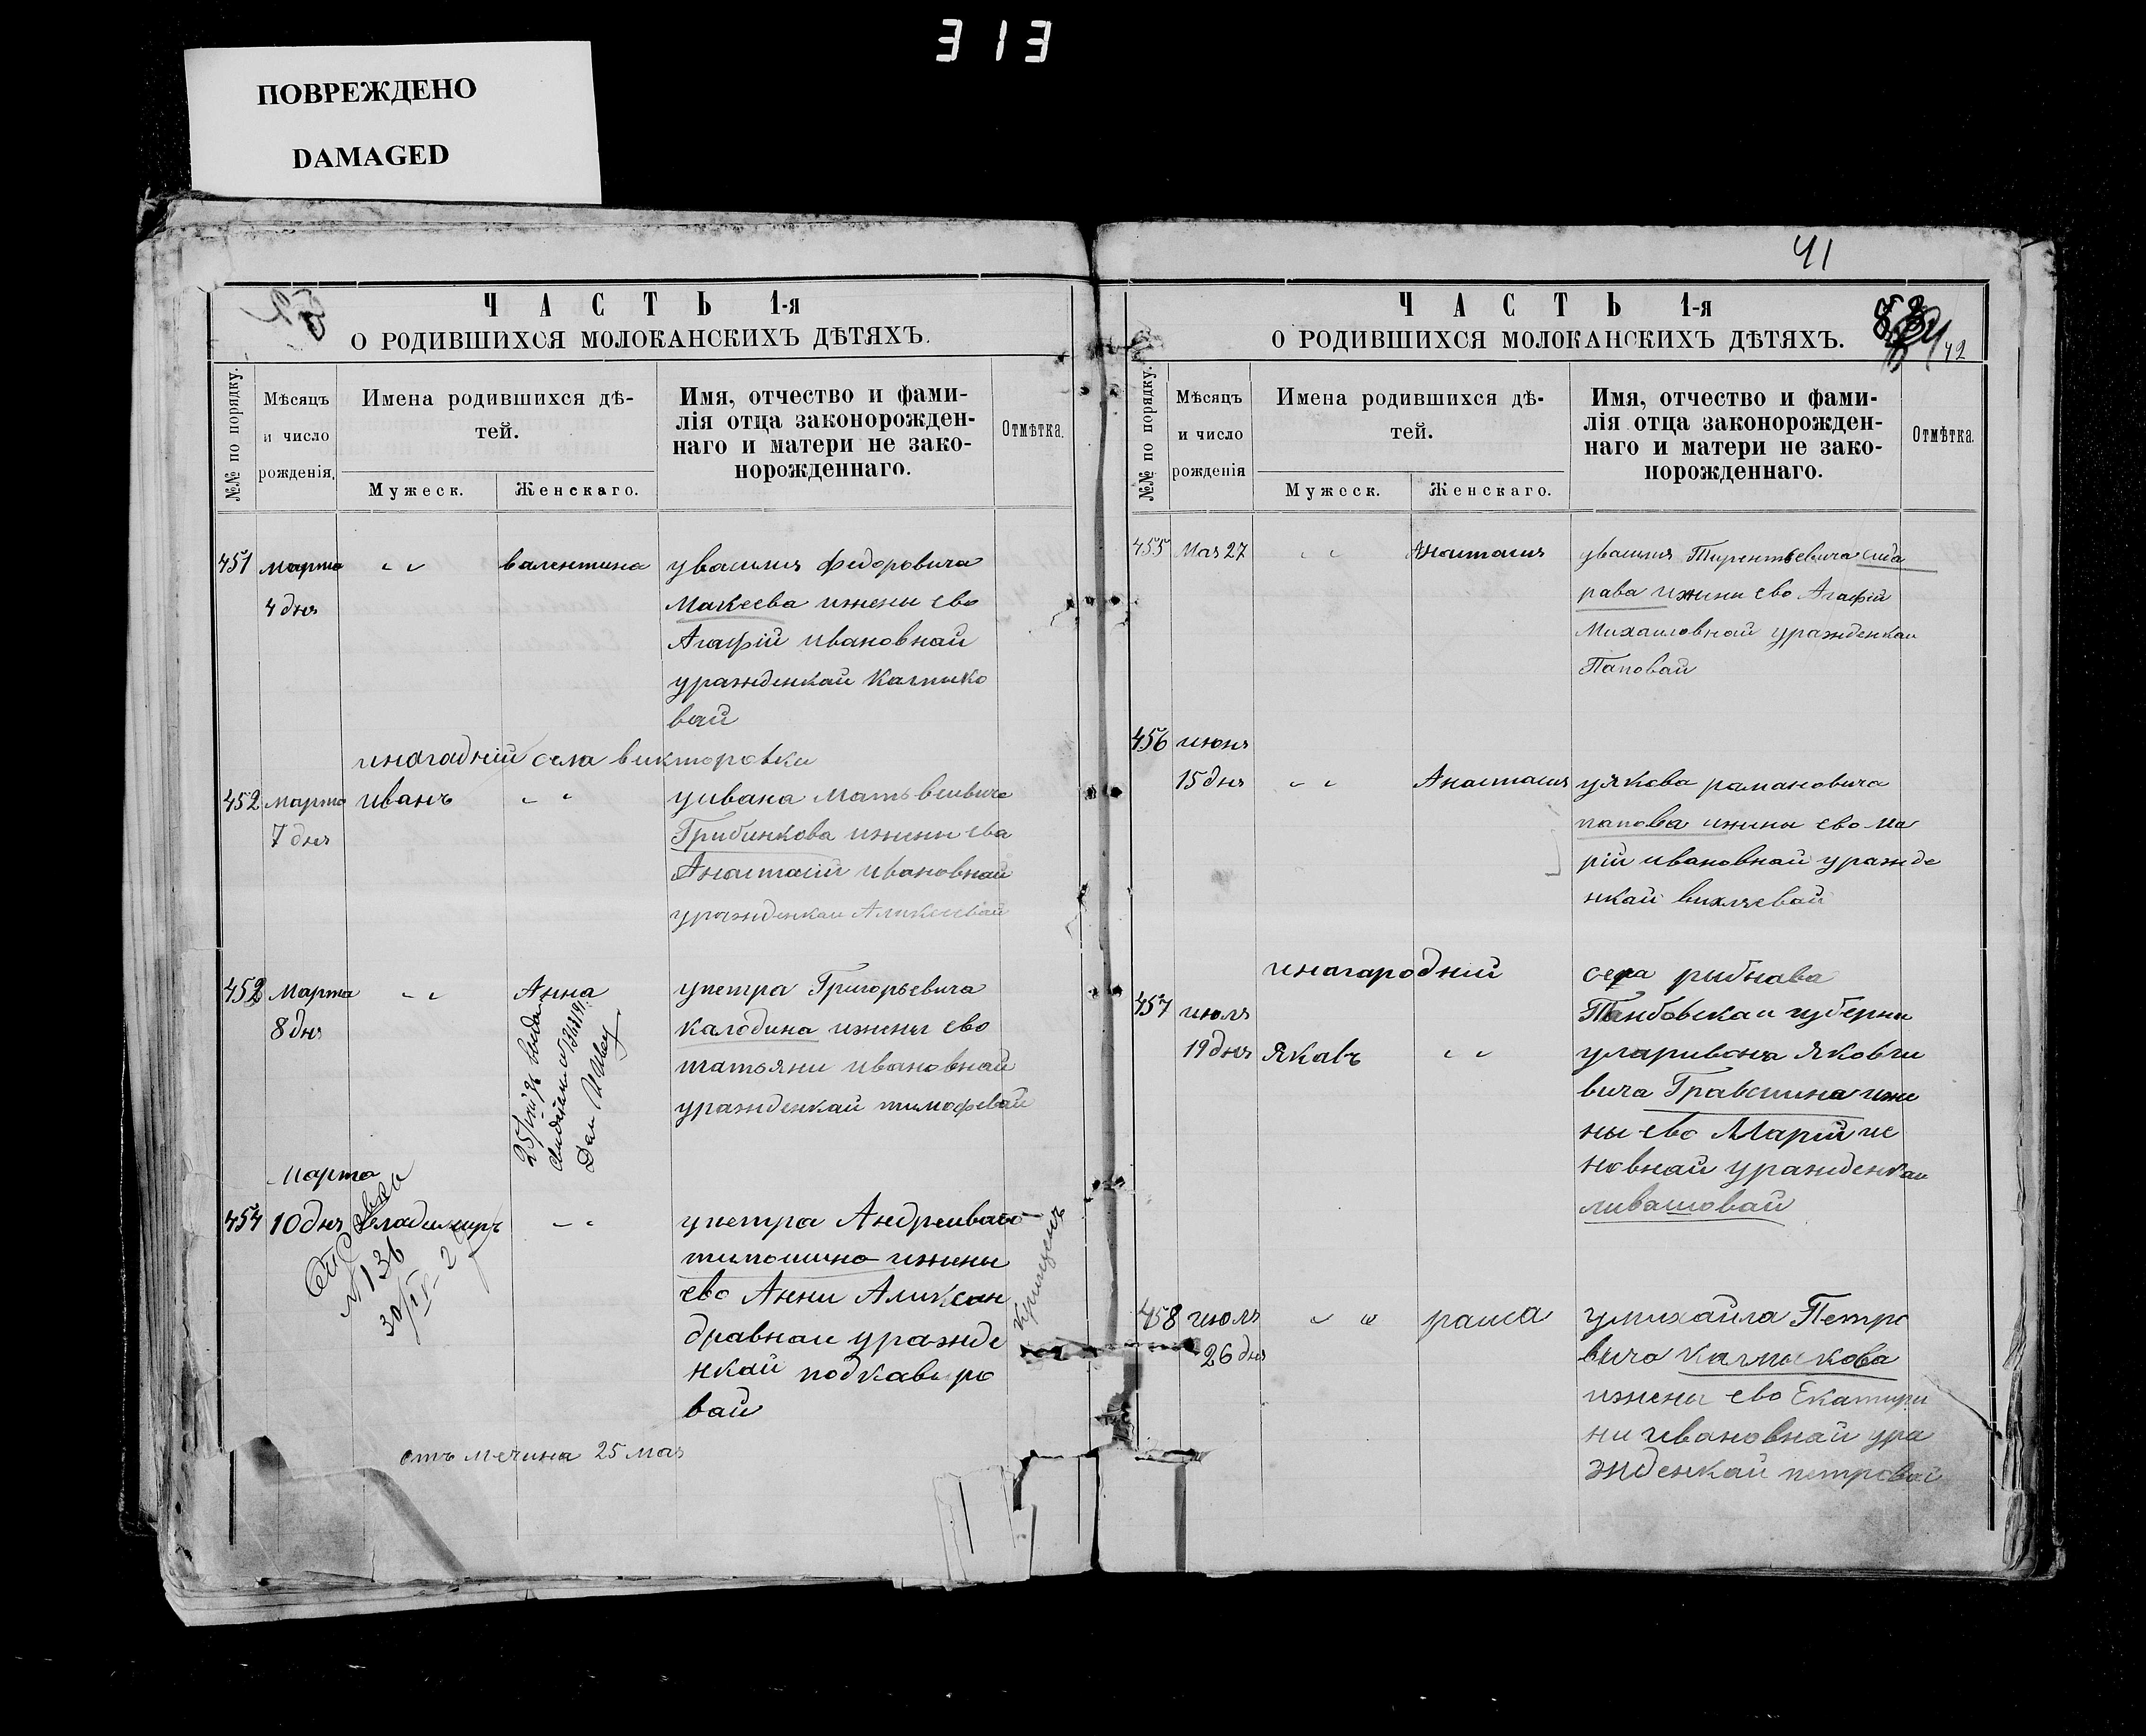 313
ПОВРЕЖДЕНО
DAMAGED
ЧАСТЬ 1-я
О РОДИВШИХСЯ МОЛОКАНСКИХЪ ДѢТЯХЪ.
№№ по порядку.
Мѣсяцъ
и число
рожденія.
Имена родившихся дѣ-
тей.
Мужеск.
Женскаго.
Имя, отчество и фами-
лія отца законорожден-
наго и матери не зако-
норожденнаго.
Отмѣтка.
451 марта " " валентина увасилия федоровича
4 дня Макеева ижены ево
Агафiй ивановнай
уражденкай Калмыко
вай
инагадний села викторовки
452 марта иванъ " " уивана матьвеивича
7 дня Грибинкова ижены ева
Анастасiй ивановнай
уражденкаи Аликеивай
453 марта " " Анна упетра Григорьевича
8 дня калодина ижены ево
татьяни ивановнай
уражденкай тимофевай
25/
марта
454 10 дня владимиръ " " упетра Андреиваю
тимошино ижены
№ 136
30/IV
ево Анни Аликсан
дравнаи уражде
нкай подкавыро
вай
отъ мечина 25 мая
41
ЧАСТЬ 1-я
О РОДИВШИХСЯ МОЛОКАНСКИХЪ ДѢТЯХЪ.
42
№№ по порядку.
Мѣсяцъ
и число
рожденія
Имена родившихся дѣ-
тей.
Мужеск.
Женскаго.
Имя, отчество и фами-
лія отца законорожден-
наго и матери не зако-
норожденнаго.
Отмѣтка.
455 Мая 27 " " Анастасия увасилия Тирентьевича сида
рава ижини ево Агафiй
Михаиловнай уражденкаи
Паповай
456 июня
15 дня " " Анастасия уякова рамановича
папова ижины ево ма
рiй ивановнай уражде
нкай вихлячевай
инагародний села рыбнава
457 июля Танбовскаи губерни
19 дня Якавъ " " уларивона яковли
вича Гравшина ижи
ны ево Марiй ие
новнай уражденкаи
ливашовай
458 июля " " раиса умихайла Петро
26 дня вича калмыкова
ижены ево Екатири
ни ивановнай ура
жденкай петровай